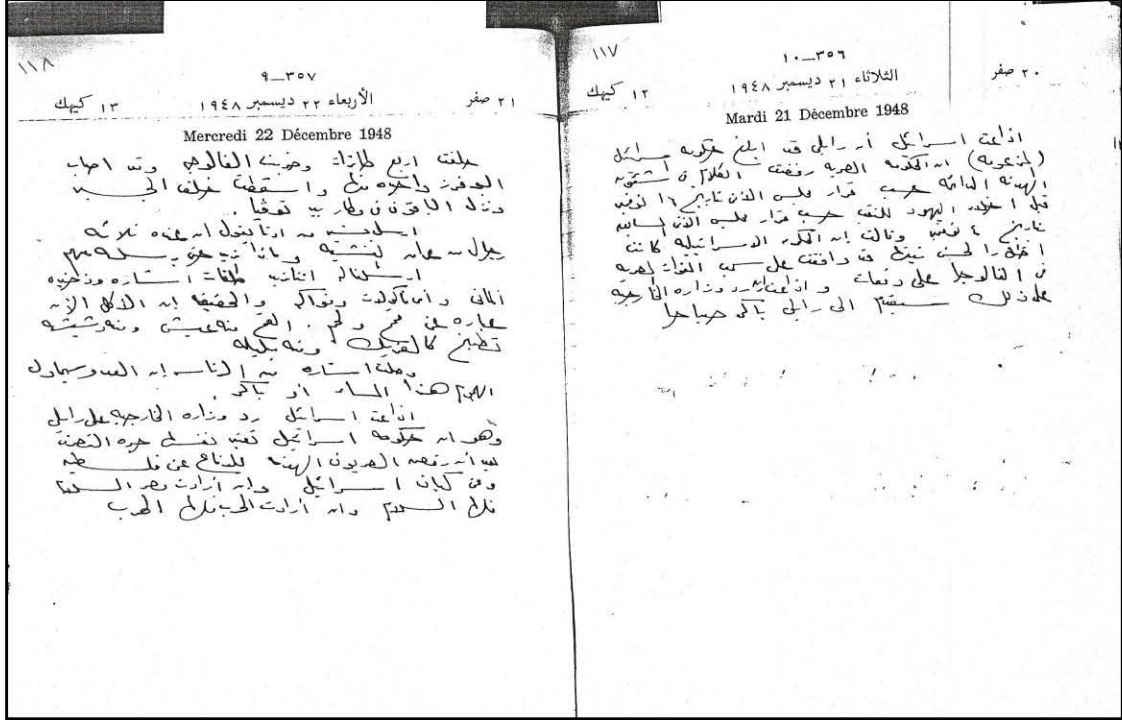 ١١٧
١٠ــ٣٥٦
٢٠ صفر
الثلاثاء ٢١ ديسمبر ١٩٤٨
١٢ كيهك
Mardi 21 Décembre 1948
اذاعت اسرائيل أن رايلي قد ابلغ حكومه اسرائيل
(المزعومة) ان الحكومه المصريه رفضت الكلام في
الهدنه الدائمه حسب قرار مجلس الامن تاريخ ١٦ نوفمبر
قبل اليهود للنقب حسب قرار مجلس الامن السابق
تاريخ ٤ نوفمبر وقالت ان الحكومه الاسرائيليه كانت
قد وافقت على سحب القوات المصريه
في الفالوجا على دفعات واذاعت ان رد وزاره الخارجيه
على ذلك سيقدم الى رايلي باكر صباحا
١١٨
٩ــ٣٥٧
٢١ صفر
الأربعاء ٢٢ ديسمبر ١٩٤٨
١٣ كيهك
Mercredi 22 Décembre 1948
حلقت اربع طائرات وضربت الفالوجه وقد اصاب
واحده منها واسقطت خلف
ونزل الباقون في
ثلاثه
رجال من عمان
ارسلنا اشاره وذخيره
والحقيقه ان الاكل الآن
عباره عن قمح ولحم. القمح منه عيش ومنه
تطبخ كالفريك ومنه بليله
وصلت اشاره من الرئاسه ان العدو سيحاول
الهجوم هذا المساء او باكر.
اذاعت اسرائيل رد وزاره الخارجيه على رايلي
وهو ان حكومه اسرائيل تعتبر نفسها حره التصرف
المصريون الهدنه للدفاع عن فلسطين
وعن كيان اسرائيل وان ارادت مصر السلام
فلها السلام وان ارادت الحرب فلها الحرب